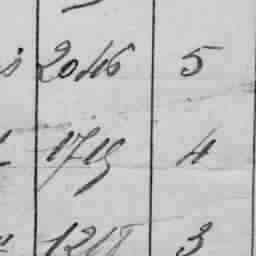 2046 5
1719 4
1218 3